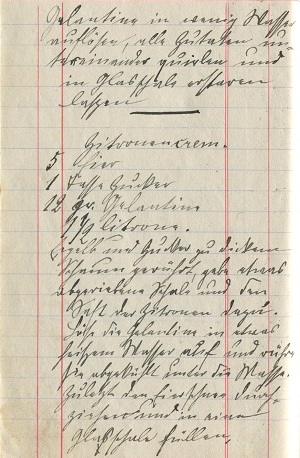 Gelantine in wenig Wasser
auflösen, alle Zutaten un-
tereinander quirlen und
in Glasschale erstarren
lassen
Zitronencrem.
5 Eier
1 Tasse Zucker
12 gr. Gelantine
1 1/2 Citrone.
Eigelb und Zucker zu dickem
Schaum gerührt, gebe etwas
abgeriebene Schale und den
Saft der Citronen dazu.
Löse die Gelantine in etwas
heißem Wasser auf und rühre
sie abgekühlt unter die Masse.
Zuletzt den Eierschnee durch-
ziehen und in eine
Glasschale füllen.